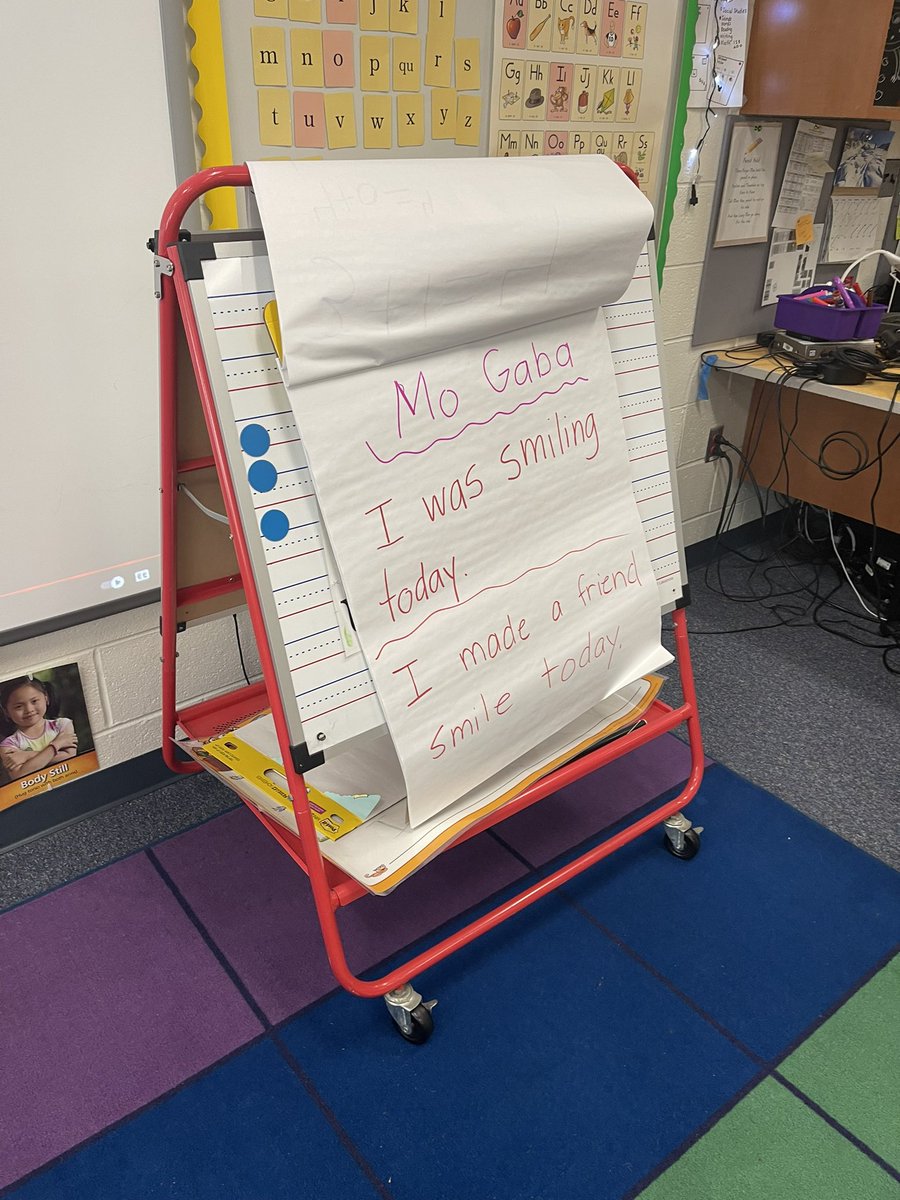 j k l
m n o p qu r s
t u v w x y z
Aa Bb Cc Dd Ee Ff
Gg Hh Ii Jj Kk Ll
Mm Nn Oo Pp Qq Rr Ss
Mo Gaba
I was smiling
today.
I made a friend
smile today.
Body Still